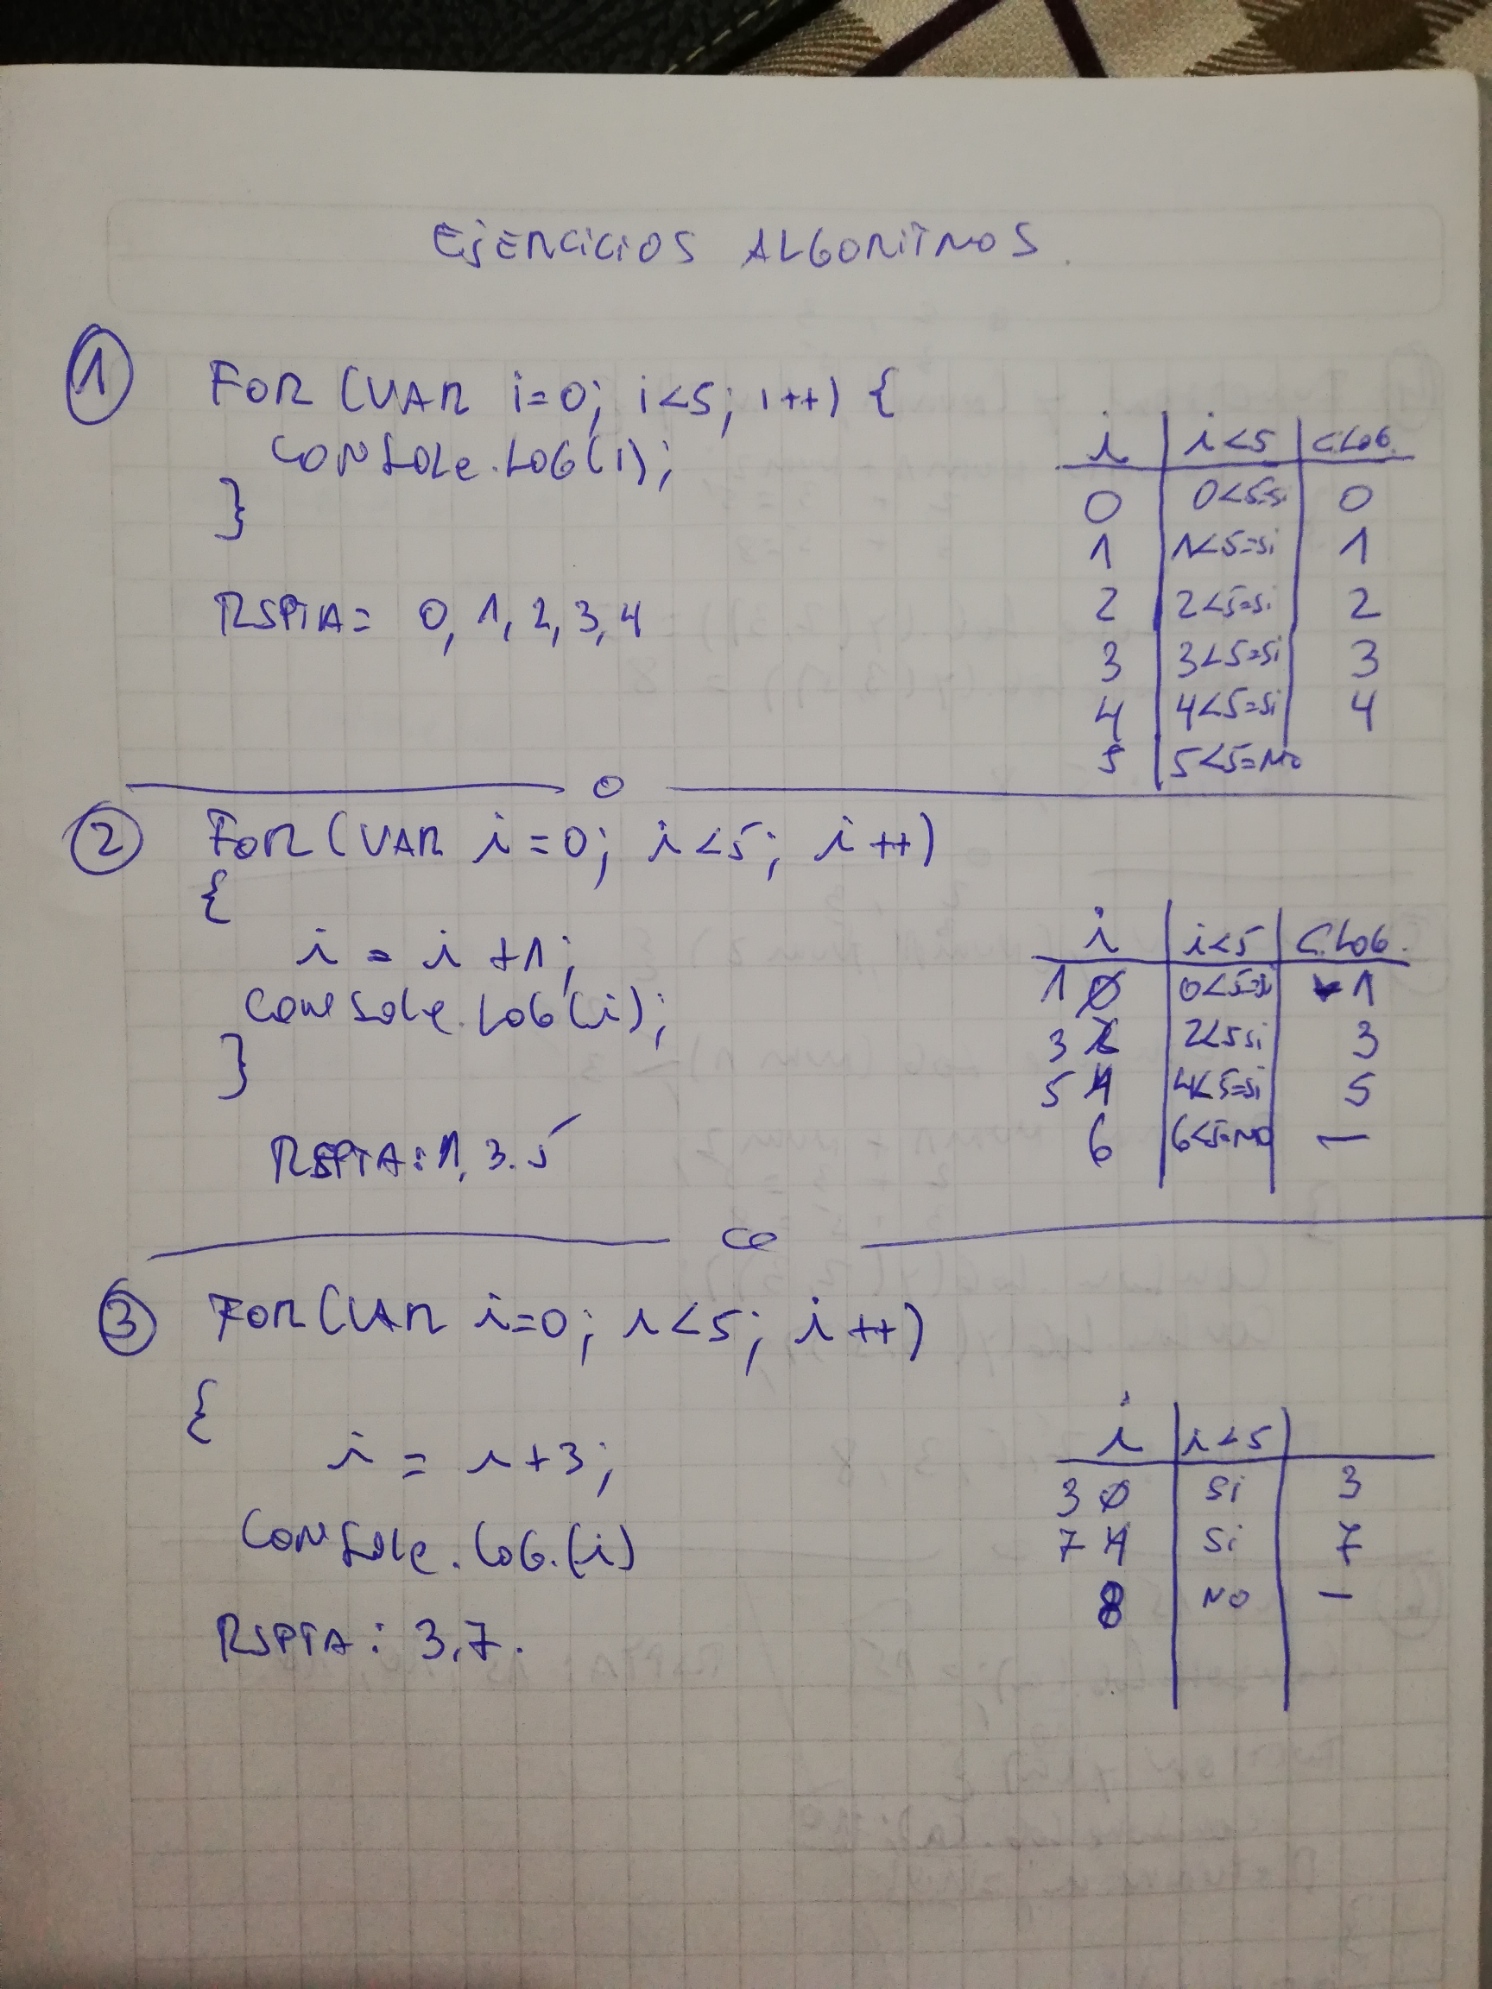 EJERCICIOS ALGORITMOS.
1
FOR (VAR i=0; i<5; i++) {
CONSOLe.LOG(i);
}
RSPTA= 0, 1, 2, 3, 4
i | i<5 | C.LOG.
0 | 0<5=si | 0
1 | 1<5=si | 1
2 | 2<5=si | 2
3 | 3<5=si | 3
4 | 4<5=si | 4
5 | 5<5=NO
2
FOR (VAR i=0; i<5; i++)
{
i = i+1;
Console.LOG(i);
}
RSPTA: 1, 3. 5
i | i<5 | C.LOG.
1 0 | 0<5=si | 1
3 2 | 2<5 si | 3
5 4 | 4<5=si | 5
6 | 6<5=NO | —
3
FOR (VAR i=0; i<5; i++)
{
i = i+3;
CONSOLe.LOG.(i)
RSPTA: 3,7.
i | i<5 |
3 0 | Si | 3
7 4 | Si | 7
8 | NO | —